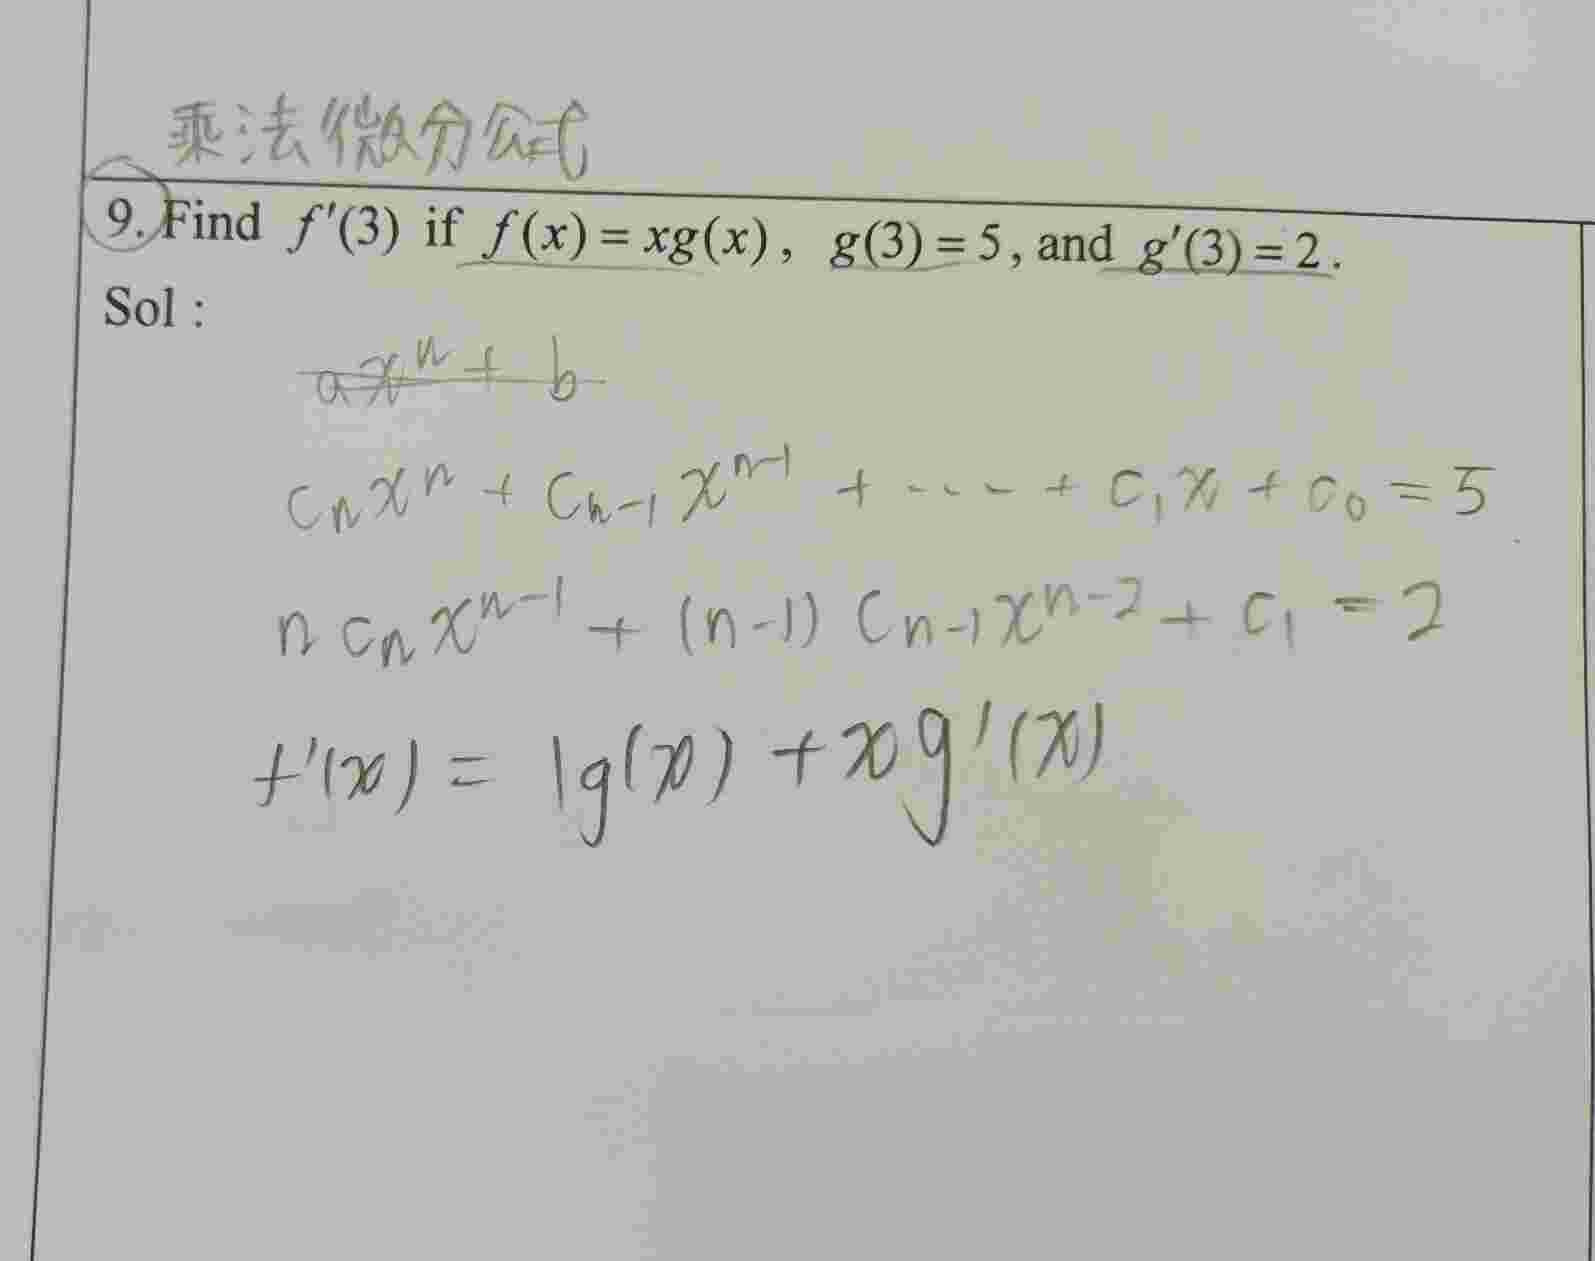 乘法微分公式
9. Find f'(3) if f(x) = xg(x), g(3) = 5, and g'(3) = 2.
Sol :
axⁿ + b
cₙxⁿ + cₙ₋₁xⁿ⁻¹ + ---- + c₁x + c₀ = 5
n cₙxⁿ⁻¹ + (n-1) cₙ₋₁xⁿ⁻² + c₁ = 2
f'(x) = 1g(x) + xg'(x)